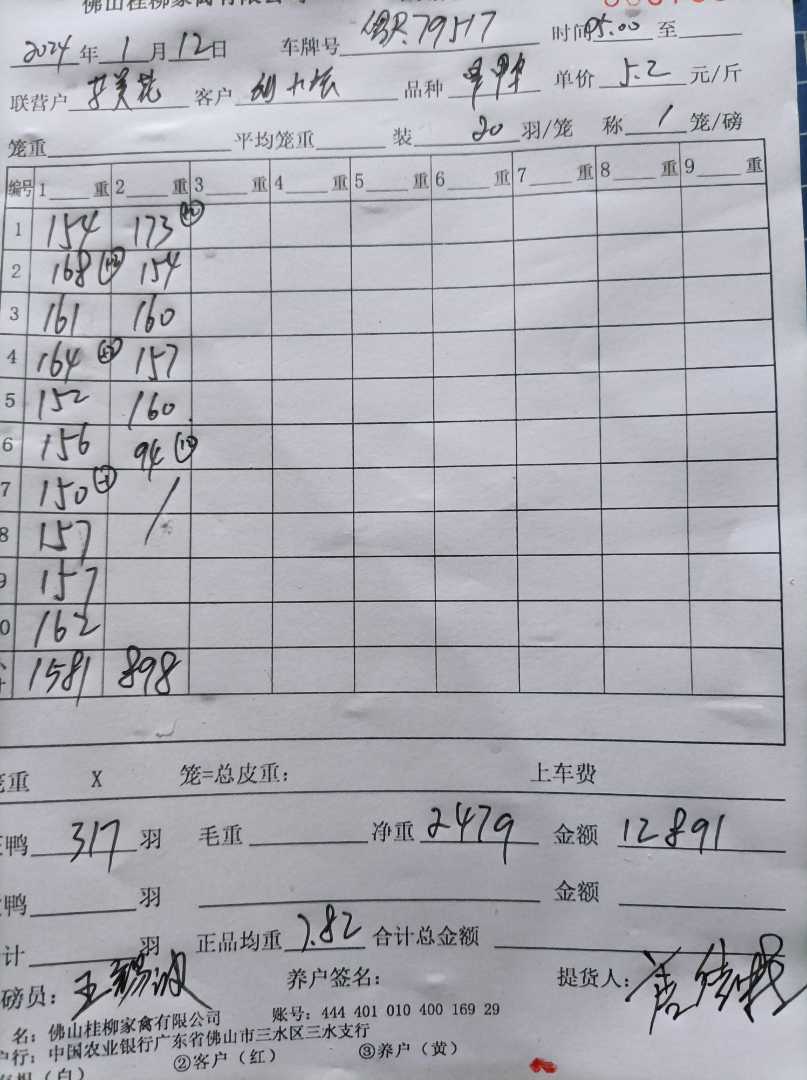 佛山桂柳家禽有限公司
2024 年 1 月 12 日 车牌号 79517 时间 05.00 至
联营户 客户 品种 单价 5.2 元/斤
笼重 平均笼重 装 20 羽/笼 称 1 笼/磅
编号 1 重 2 重 3 重 4 重 5 重 6 重 7 重 8 重 9 重
1 154 173
2 168 154
3 161 160
4 164 157
5 152 160
6 156 94
7 150
8 157
9 157
0 162
1581 898
笼重 X 笼=总皮重: 上车费
鸭 317 羽 毛重 净重 2479 金额 12891
鸭 羽 金额
计 羽 正品均重 7.82 合计总金额
磅员: 王 养户签名: 提货人:
名: 佛山桂柳家禽有限公司 账号: 444 401 010 400 169 29
户行: 中国农业银行广东省佛山市三水区三水支行
(白) ②客户(红) ③养户(黄)